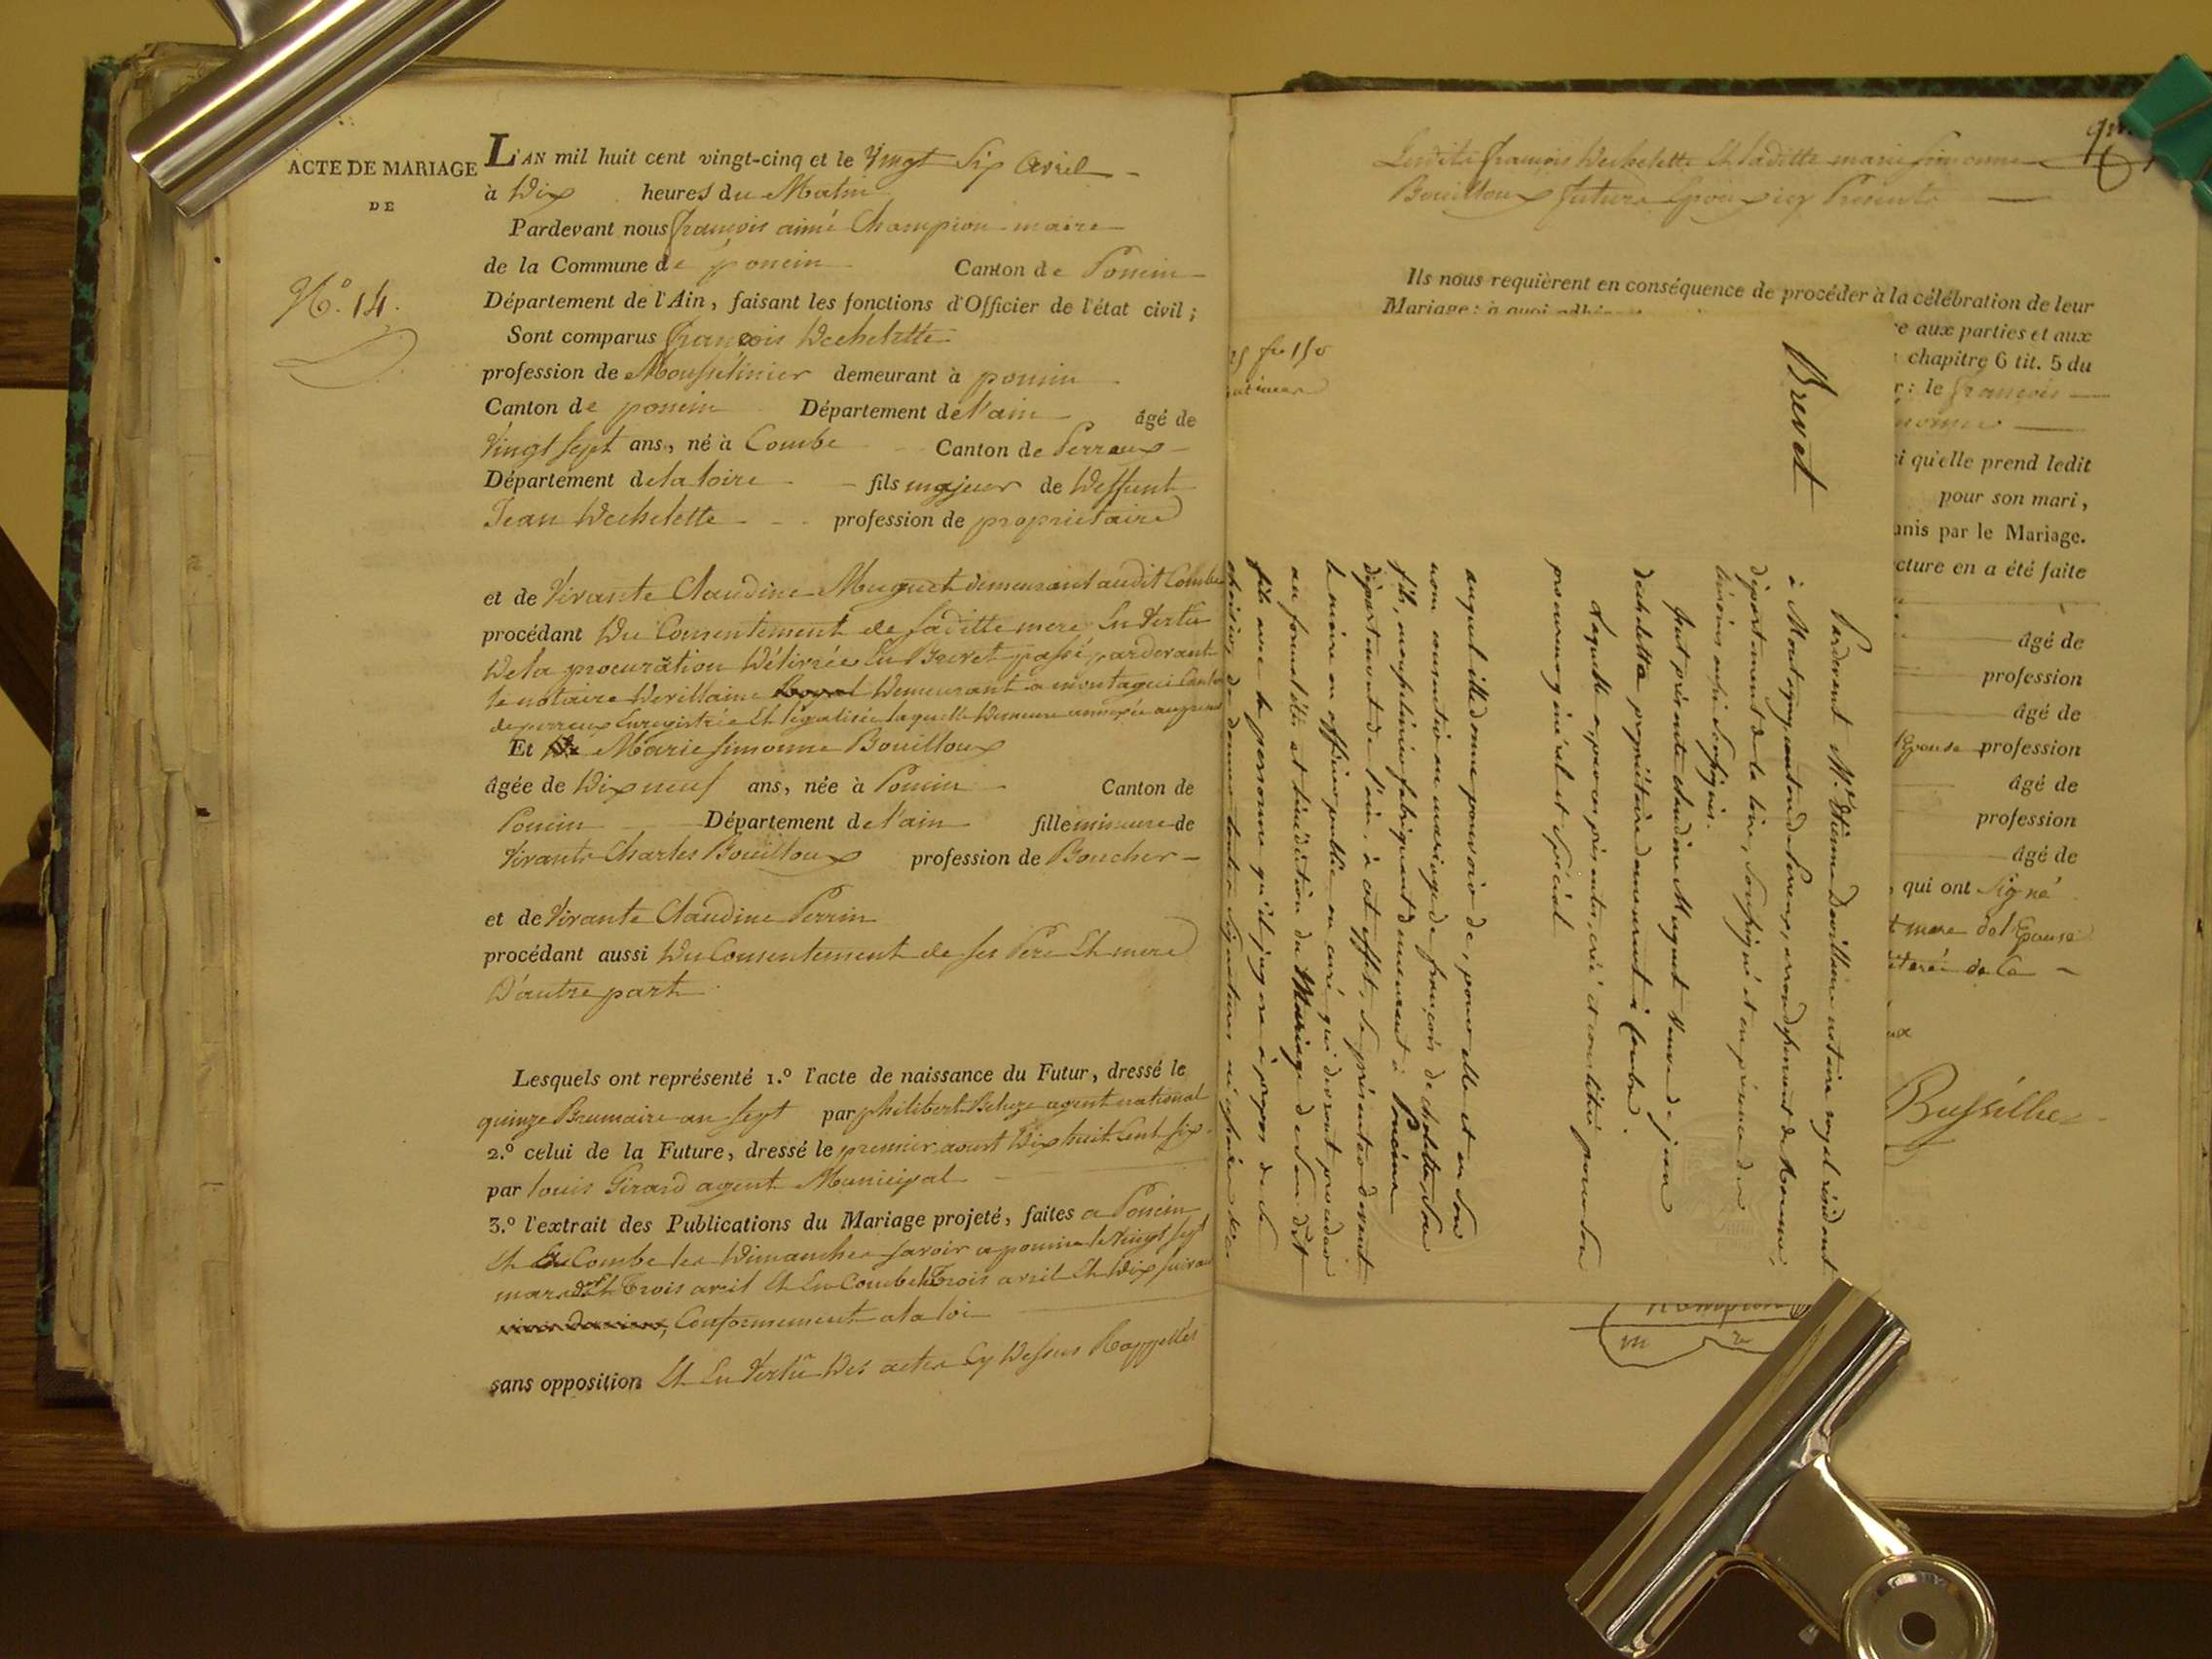 ACTE DE MARIAGE
DE
N.° 14.
L'AN mil huit cent vingt-cinq et le Vingt Six avril
à Dix heures du Matin
Pardevant nous françois aimé Champion maire
de la Commune de poncin Canton de Poncin
Département de l'Ain, faisant les fonctions d'Officier de l'état civil ;
Sont comparus françois Dechelette
profession de Mousselinier demeurant à poncin
Canton de poncin Département de l'ain âgé de
Vingt Sept ans, né à Combe Canton de Perreux
Département de la loire fils majeur de Deffunt
Jean Dechelette profession de proprietaire
et de Vivante Claudine Muguet demeurant audit Combe
procédant Du Consentement de Saditte mere En Vertu
De la procuration Délivrée En Brevet passé pardevant
le notaire Devillaine Demeurant a montagni Canton
de perreux Enregistrée Et légalisée laquelle Demeure annexée au present
Et Marie Simonne Bouilloux
âgée de Dix neuf ans, née à Poncin Canton de
Poncin Département de l'ain fille mineure de
Vivants Charles Bouilloux profession de Boucher
et de Vivante Claudine Perrin
procédant aussi Du Consentement de ses Pere Et mere
D'autre part
Lesquels ont représenté 1.° l'acte de naissance du Futur, dressé le
quinze Brumaire an Sept par philibert Beluze agent national
2.° celui de la Future, dressé le premier aoust Dix huit Cent Six
par louis Girard agent Municipal
3.° l'extrait des Publications du Mariage projeté, faites a Poncin
Et a Combe les Dimanches savoir a poncin le Vingt Sept
mars Et Trois avril Et En Combe le Trois avril Et Dix suivant
Conformement a la loi
sans opposition Et En Vertu Des actes Cy Dessus Rappellés
Lesdits françois Dechelette Et laditte marie Simonne
Bouilloux futurs Epoux icy Presents
Ils nous requièrent en conséquence de procéder à la célébration de leur
Mariage : à quoi
re aux parties et aux
chapitre 6 tit. 5 du
r : le françois
i qu'elle prend ledit
pour son mari,
unis par le Mariage.
cture en a été faite
âgé de
profession
âgé de
Epouse profession
âgé de
profession
âgé de
, qui ont Signé
t mere de l'Epouse
de Ce
Bussillet
Brevet
Pardevant M.e Etienne Devillaine notaire royal résidant
à Montagny, canton de Perreux, arrondissement de Roanne,
département de la loire, soussigné et en présence des
témoins aussi soussignés.
fut présente claudine Muguet veuve de jean
dechelette propriétaire demeurant à Combe.
Laquelle a par ces présentes, créé et constitué pour son
procureur général et spécial
auquel elle donne pouvoir de, pour elle et en son
nom consentir au mariage de françois dechelette, son
fils, mousselinier fabriquant demeurant à Poncin
département de l'ain, à cet effet, se présenter devant
le maire ou officier public ou curé qui devront procéder
au formalités et bénédiction du Mariage de son dit
fils avec la personne qu'il jugera à propos de se
choisir, de donner toutes signatures